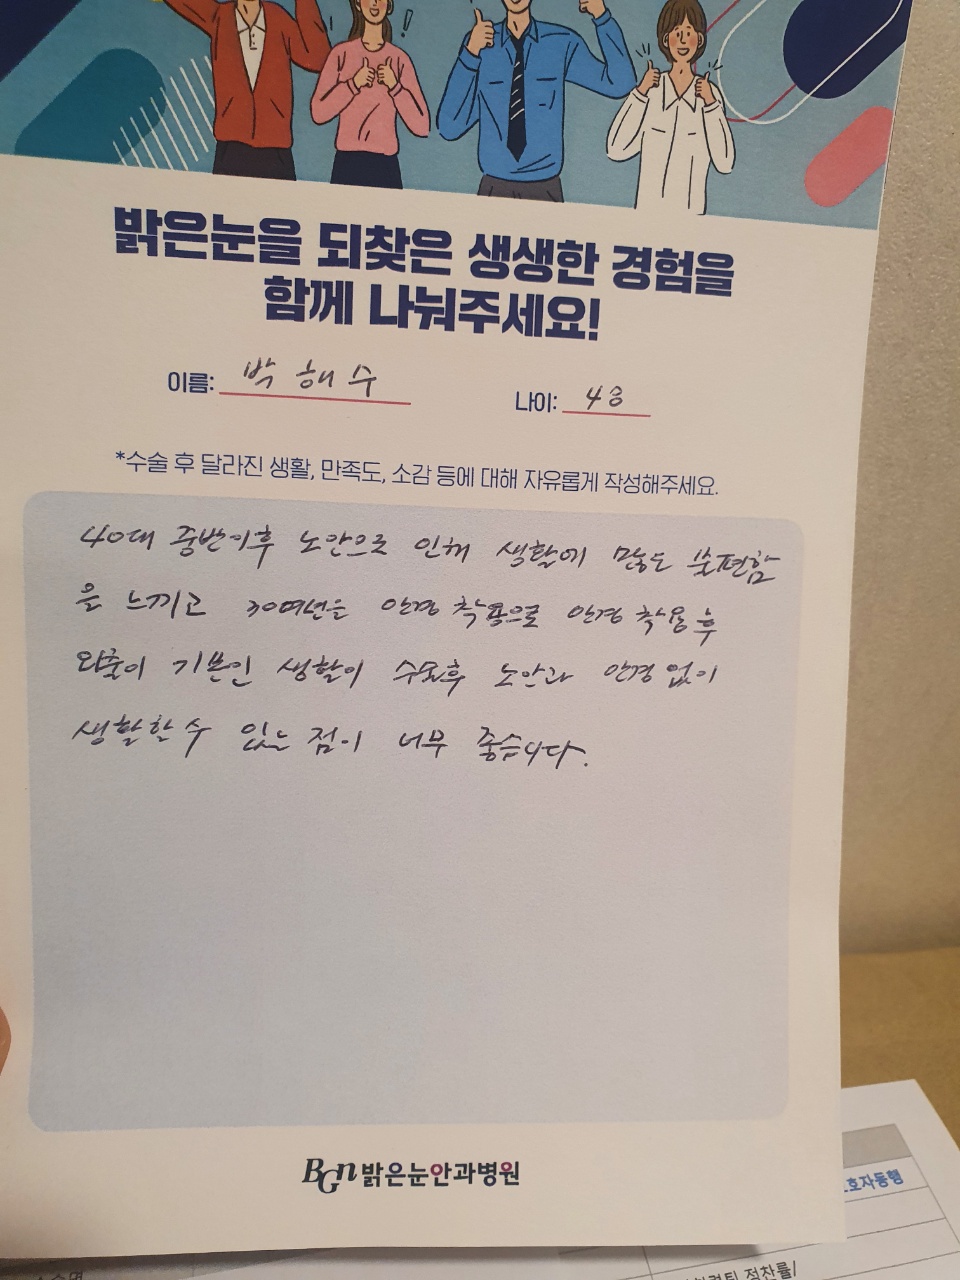 밝은눈을 되찾은 생생한 경험을
함께 나눠주세요!
이름: 박해수 나이: 48
*수술 후 달라진 생활, 만족도, 소감 등에 대해 자유롭게 작성해주세요.
40대 중반이후 노안으로 인해 생활에 많은 불편함
을 느끼고 30여년을 안경 착용으로 안경 착용 후
외출이 기본인 생활이 수술후 노안과 안경 없이
생활할 수 있는 점이 너무 좋습니다.
BGN 밝은눈안과병원
호자동행
점찬률/